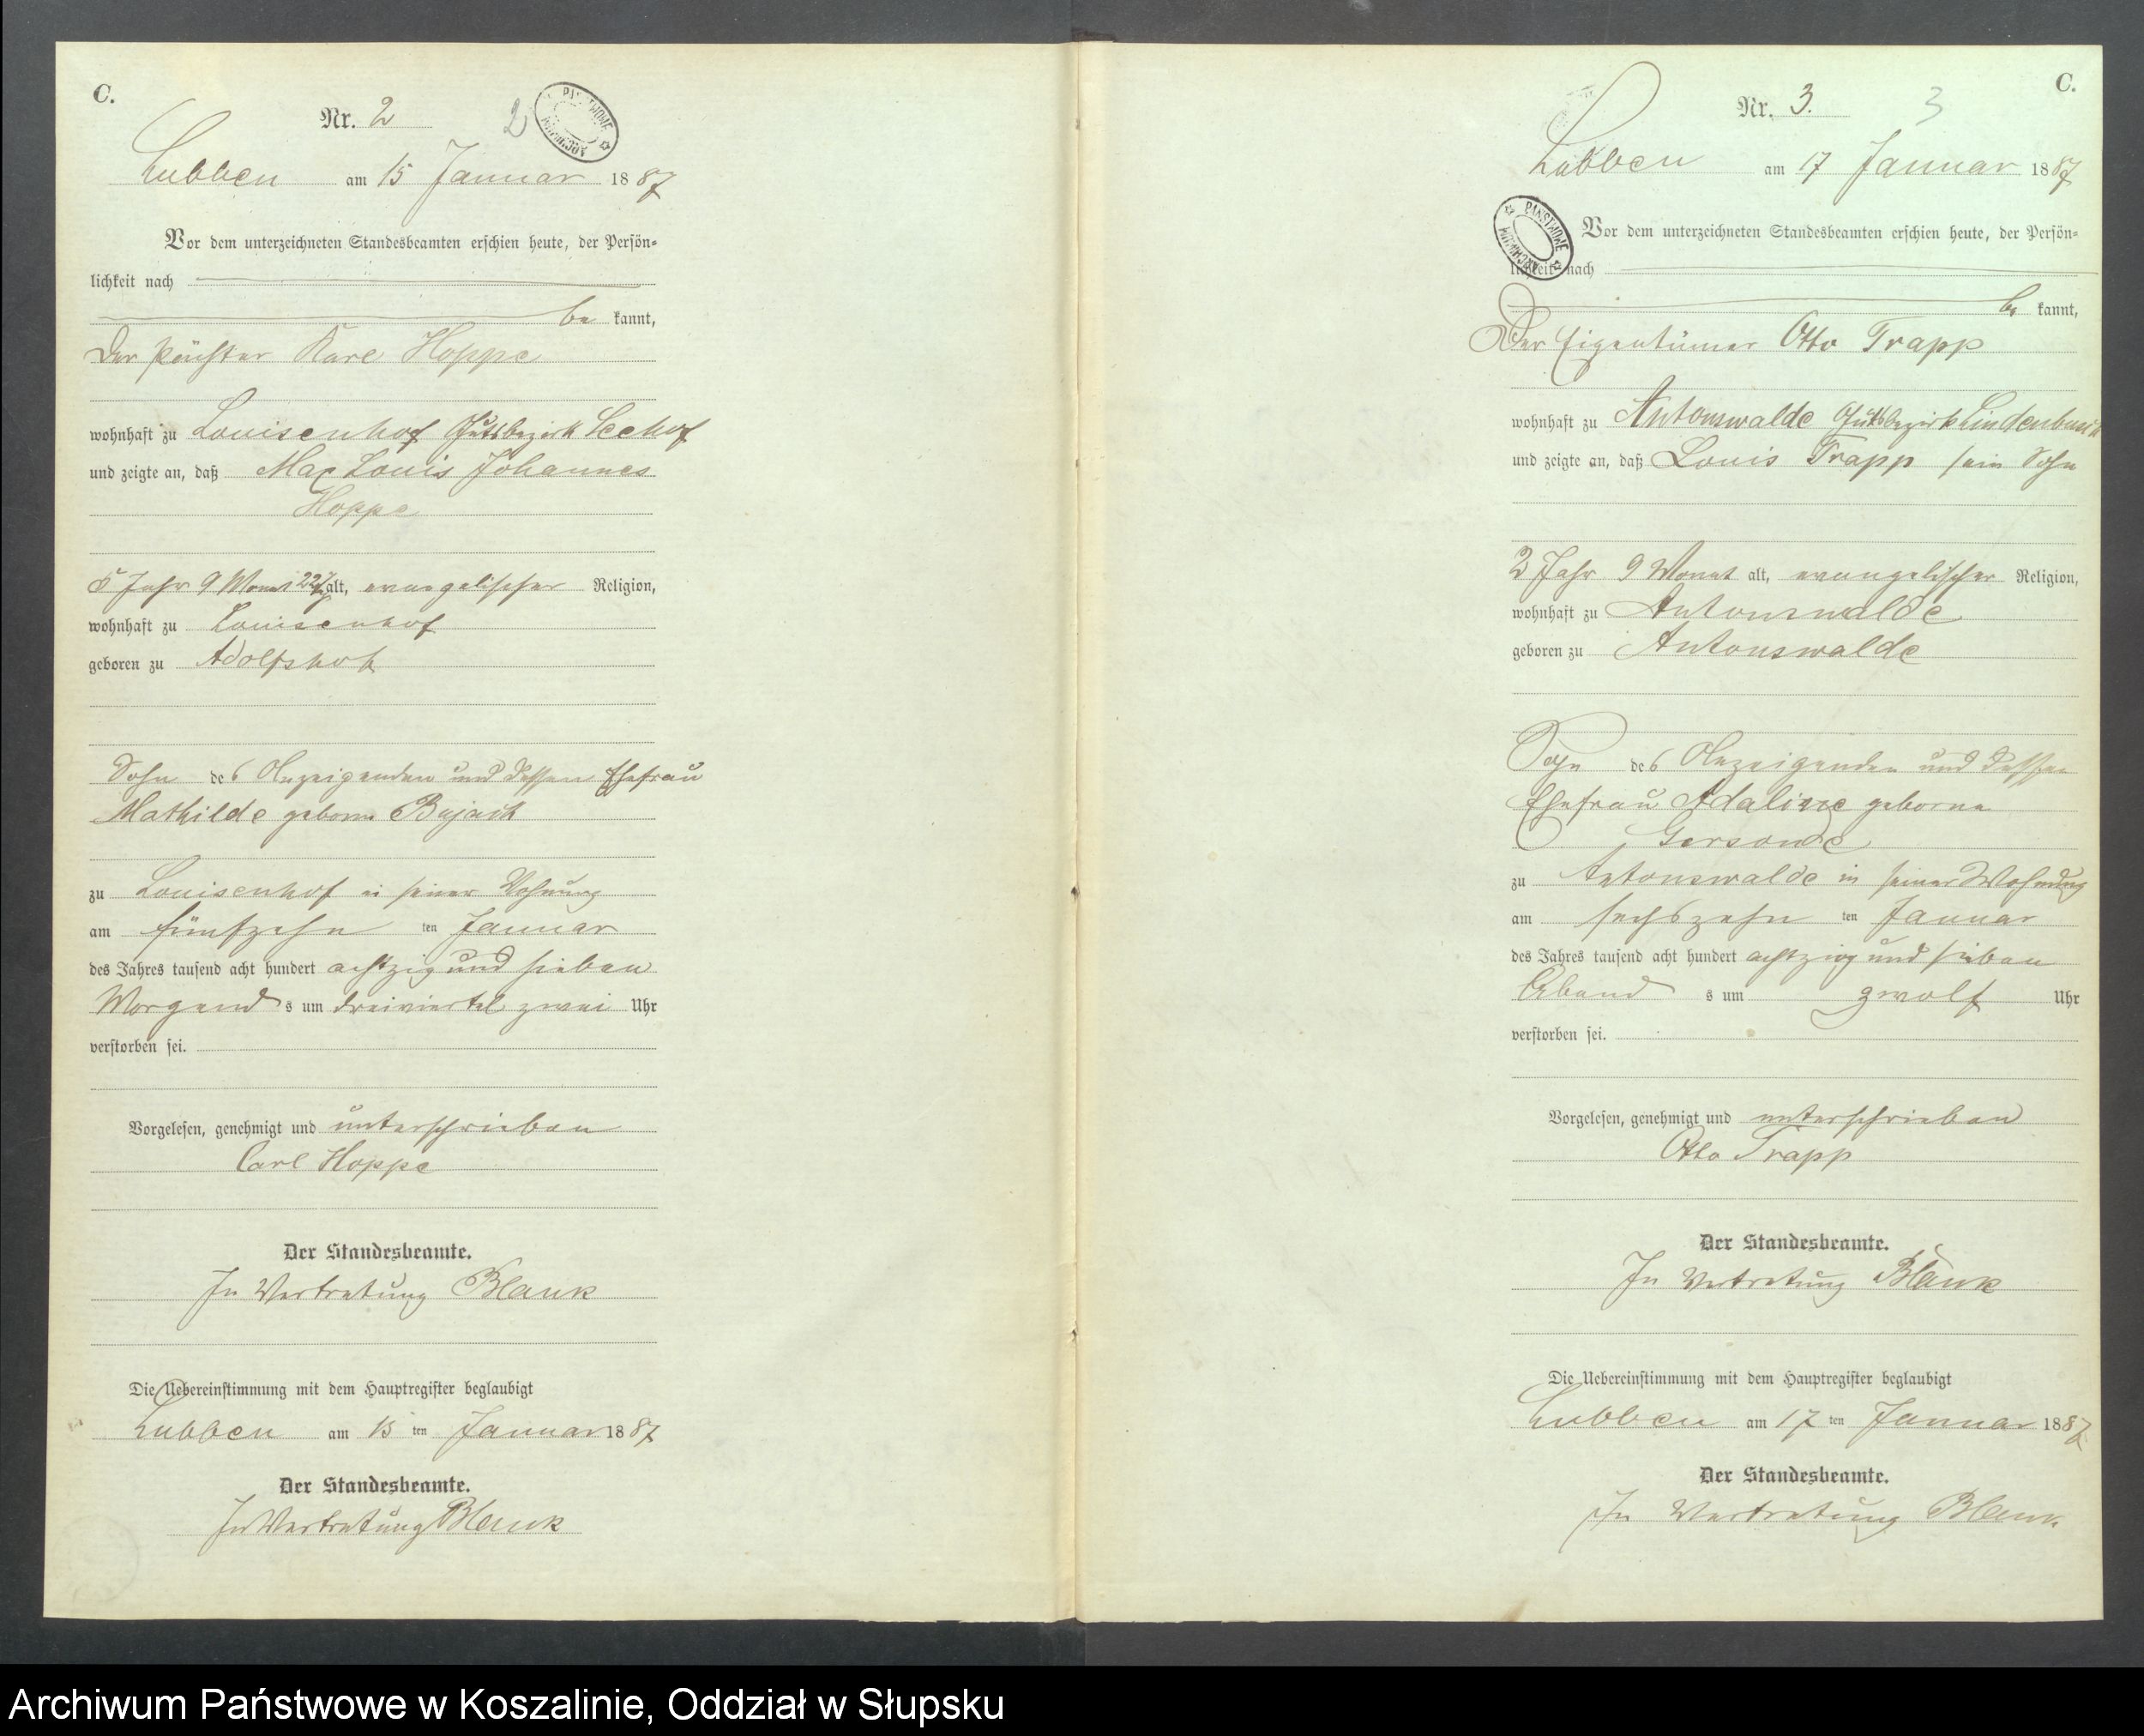 C.
Nr. 2
2
PAŃSTWOWE ARCHIWUM
Lubben am 15 Januar 1887
Vor dem unterzeichneten Standesbeamten erschien heute, der Persön-
lichkeit nach
be kannt,
Der Pächter Karl Hoppe
wohnhaft zu Louisenhof Gutsbezirk Seehof
und zeigte an, daß Max Louis Johannes
Hoppe
5 Jahr 9 Monat 22 alt, evangelischer Religion,
wohnhaft zu Louisenhof
geboren zu Adolfshof
Sohn des Anzeigenden und dessen Ehefrau
Mathilde geborne Bujack
zu Louisenhof in seiner Wohnung
am fünfzehn ten Januar
des Jahres tausend acht hundert achtzig und sieben
Morgend s um dreiviertel zwei Uhr
verstorben sei.
Vorgelesen, genehmigt und unterschrieben
Carl Hoppe
Der Standesbeamte.
In Vertretung Blank
Die Uebereinstimmung mit dem Hauptregister beglaubigt
Lubben am 15 ten Januar 1887
Der Standesbeamte.
In Vertretung Blank
C.
Nr. 3.
3
Lubben am 17 Januar 1887
PAŃSTWOWE ARCHIWUM
Vor dem unterzeichneten Standesbeamten erschien heute, der Persön-
lichkeit nach
be kannt,
Der Eigentümer Otto Trapp
wohnhaft zu Antonswalde Gutsbezirk Lindenbusch
und zeigte an, daß Louis Trapp sein Sohn
2 Jahr 9 Monat alt, evangelischer Religion,
wohnhaft zu Antonswalde
geboren zu Antonswalde
Sohn des Anzeigenden und dessen
Ehefrau Adaline geborne
Gersonde
zu Antonswalde in seiner Wohnung
am sechszehn ten Januar
des Jahres tausend acht hundert achtzig und sieben
Abend s um zwölf Uhr
verstorben sei.
Vorgelesen, genehmigt und unterschrieben
Otto Trapp
Der Standesbeamte.
In Vertretung Blank
Die Uebereinstimmung mit dem Hauptregister beglaubigt
Lubben am 17 ten Januar 1887
Der Standesbeamte.
In Vertretung Blank
Archiwum Państwowe w Koszalinie, Oddział w Słupsku